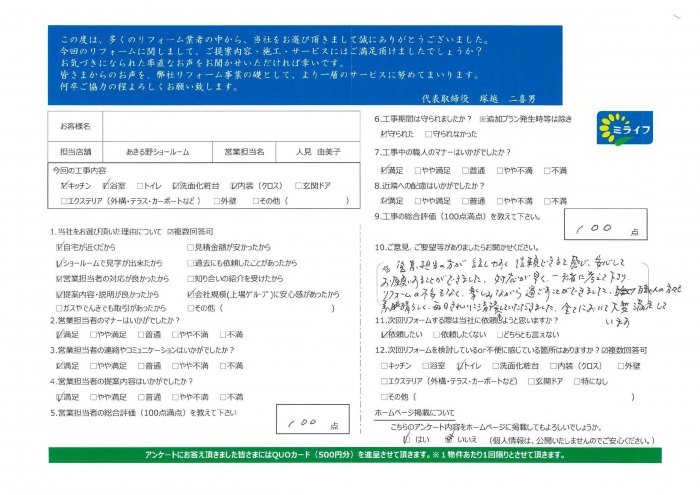 この度は、多くのリフォーム業者の中から、当社をお選び頂きまして誠にありがとうございました。
今回のリフォームに関しまして、ご提案内容・施工・サービスにはご満足頂けましたでしょうか？
お気づきになられた率直なお声をお聞かせいただければ幸いです。
皆さまからのお声を、弊社リフォーム事業の礎として、より一層のサービスに努めてまいります。
何卒ご協力の程よろしくお願い致します。
代表取締役 塚越 二喜男
お客様名
担当店舗 あきる野ショールーム 営業担当名 人見 由美子
今回の工事内容
☑キッチン ☑浴室 □トイレ ☑洗面化粧台 ☑内装（クロス） □玄関ドア
□エクステリア（外構・テラス・カーポートなど ） □外壁 □その他（ ）
1.当社をお選び頂いた理由について ☑複数回答可
☑自宅が近くだから □見積金額が安かったから
☑ショールームで見学が出来たから □過去にも依頼したことがあったから
☑営業担当者の対応が良かったから □知り合いの紹介を受けたから
☑提案内容・説明が良かったから ☑会社規模(上場グループ)に安心感があったから
□ガスやでんきでも取引があったから □その他（ ）
2.営業担当者のマナーはいかがでしたか？
☑満足 □やや満足 □普通 □やや不満 □不満
3.営業担当者の連絡やコミュニケーションはいかがでしたか？
☑満足 □やや満足 □普通 □やや不満 □不満
4.営業担当者の提案内容はいかがでしたか？
☑満足 □やや満足 □普通 □やや不満 □不満
5.営業担当者の総合評価（100点満点）を教えて下さい
100 点
6.工事期間は守られましたか？ ※追加プラン発生時等は除き
☑守られた □守られなかった
ミライフ
7.工事中の職人のマナーはいかがでしたか？
☑満足 □やや満足 □普通 □やや不満 □不満
8.近隣への配慮はいかがでしたか？
☑満足 □やや満足 □普通 □やや不満 □不満
9.工事の総合評価（100点満点）を教えて下さい。
100 点
10.ご意見、ご要望等がありましたらお聞かせください。
営業担当の方が話しやすく信頼できると感じ、安心して
お願いすることができました。対応が早く、一緒に考えて下さり
リフォームの不安もなく、楽しみながら過ごすことができました。職人の方も
素晴らしく、毎日きれいに清掃していただきました。全てにおいて大変満足して
います
11.次回リフォームする際は当社に依頼しようと思いますか？
☑依頼したい □依頼したくない □どちらとも言えない
12.次回リフォームを検討しているor不便に感じている箇所はありますか？☑複数回答可
□キッチン □浴室 ☑トイレ □洗面化粧台 □内装（クロス） □外壁
□エクステリア（外構・テラス・カーポートなど） □玄関ドア □特になし
□その他（ ）
ホームページ掲載について
こちらのアンケート内容をホームページに掲載してもよろしいでしょうか。
□はい ☑いいえ （個人情報は、公開いたしませんのでご安心ください。）
アンケートにお答え頂きました皆さまにはQUOカード（500円分）を進呈させて頂きます。※１物件あたり１回限りとさせて頂きます。